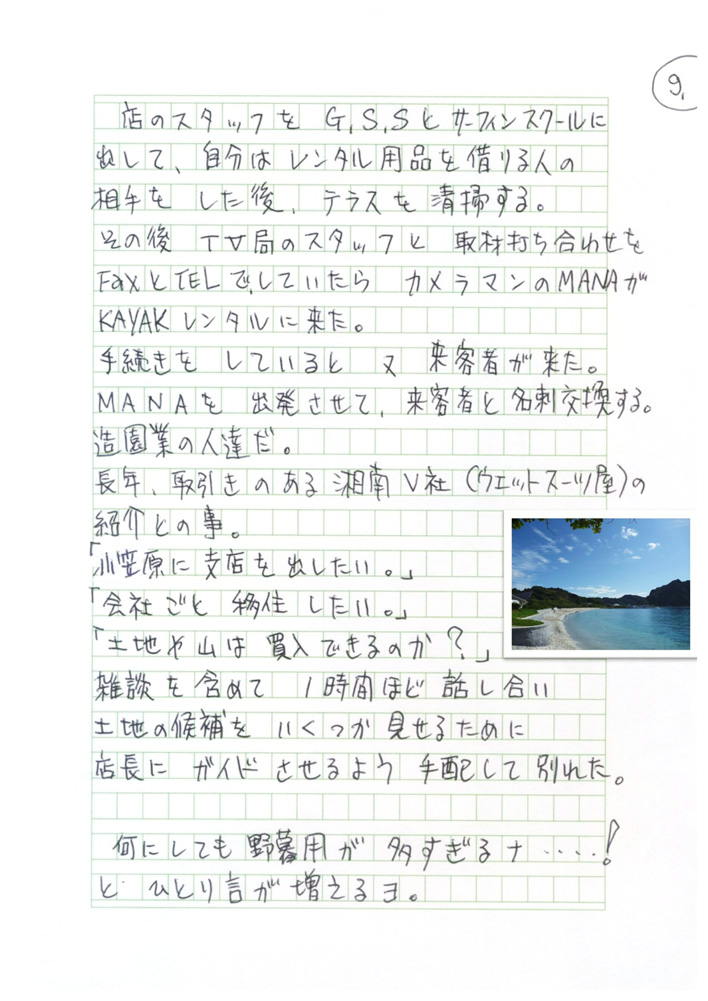 9.
店のスタッフを G.S.Sと サーフィンスクールに
出して、自分は レンタル用品を借りる人の
相手を した後、テラスを 清掃する。
その後 TV局のスタッフと 取材打ち合わせを
FaxとTELでしていたら カメラマンのMANAが
KAYAKレンタルに来た。
手続きを していると 又 来客者が来た。
MANAを 出発させて、来客者と名刺交換する。
造園業の人達だ。
長年、取引きのある湘南V社(ウエットスーツ屋)の
紹介との事。
「小笠原に支店を出したい。」
「会社ごと 移住 したい。」
「土地や山は 買入できるのか?」
雑談を含めて 1時間ほど 話し合い
土地の候補を いくつか見せるために
店長に ガイド させるよう 手配して 別れた。
何にしても 野暮用が 多すぎるナ ‥‥!
と ひとり言が増えるヨ。